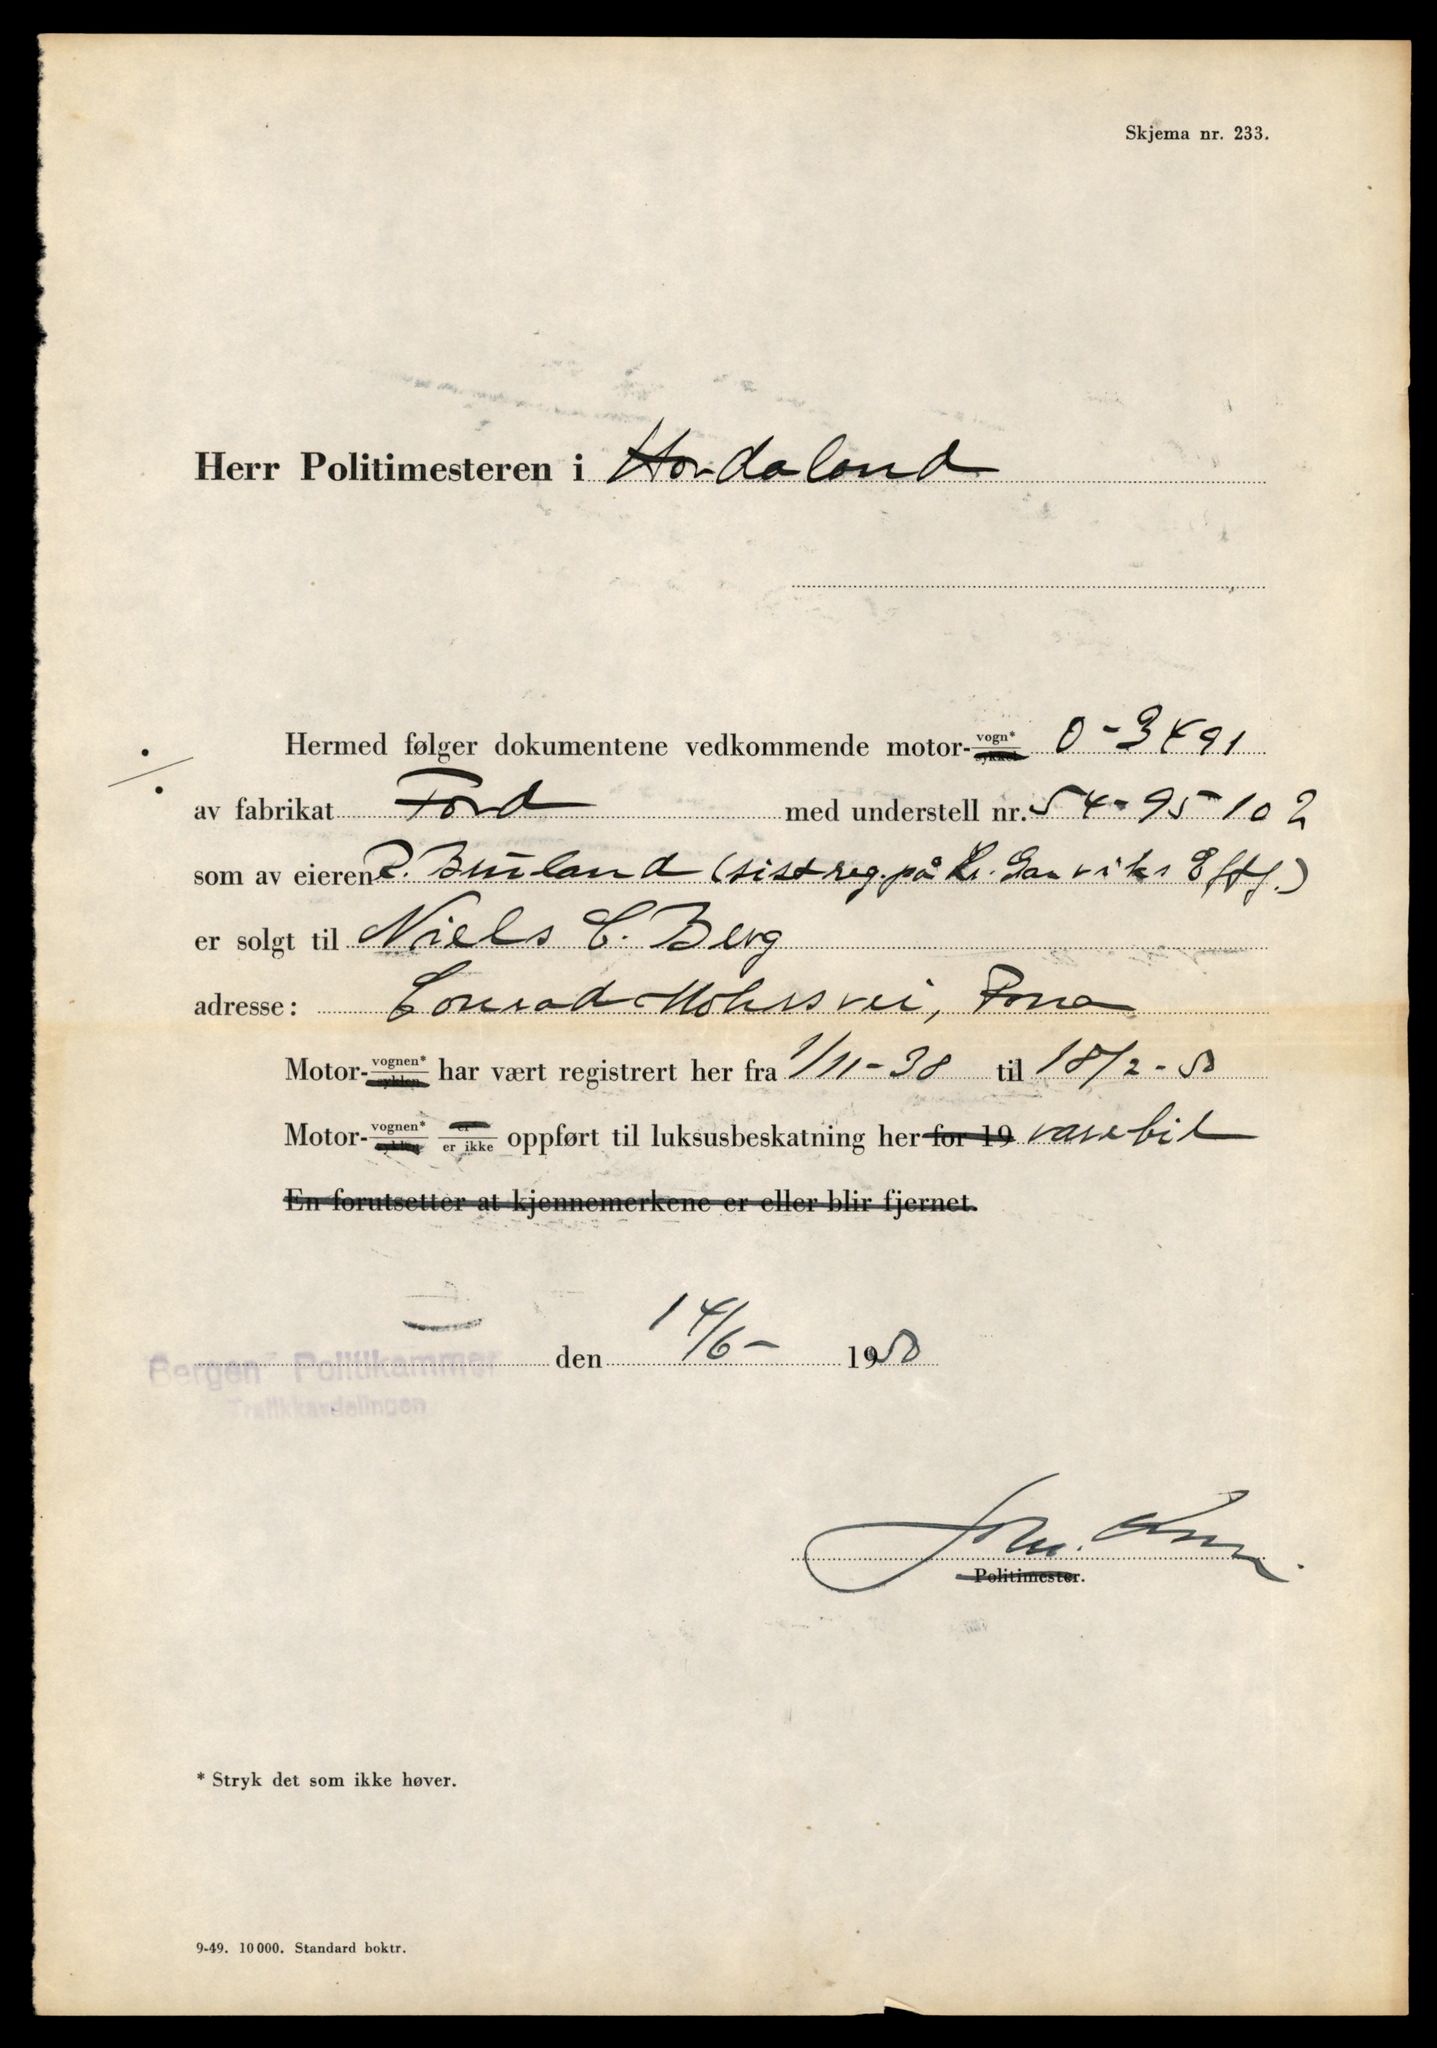 Skjema nr. 233.
Herr Politimesteren i Hordaland
Hermed følger dokumentene vedkommende motor-vogn* sykkel O-3491
av fabrikat Ford med understell nr. 54-95102
som av eieren R. Buuland (sist reg. på Kr. Ganviks Eftf.)
er solgt til Niels C. Berg
adresse: Conrad Mohrsvei, Fana
Motor-vognen* syklen har vært registrert her fra 1/11-38 til 18/2-50
Motor-vognen* syklen er er ikke oppført til luksusbeskatning her for 19 varebil
En forutsetter at kjennemerkene er eller blir fjernet.
Bergen Politikammer den 14/6- 1950
Trafikkavdelingen
Politimester.
* Stryk det som ikke høver.
9-49. 10 000. Standard boktr.